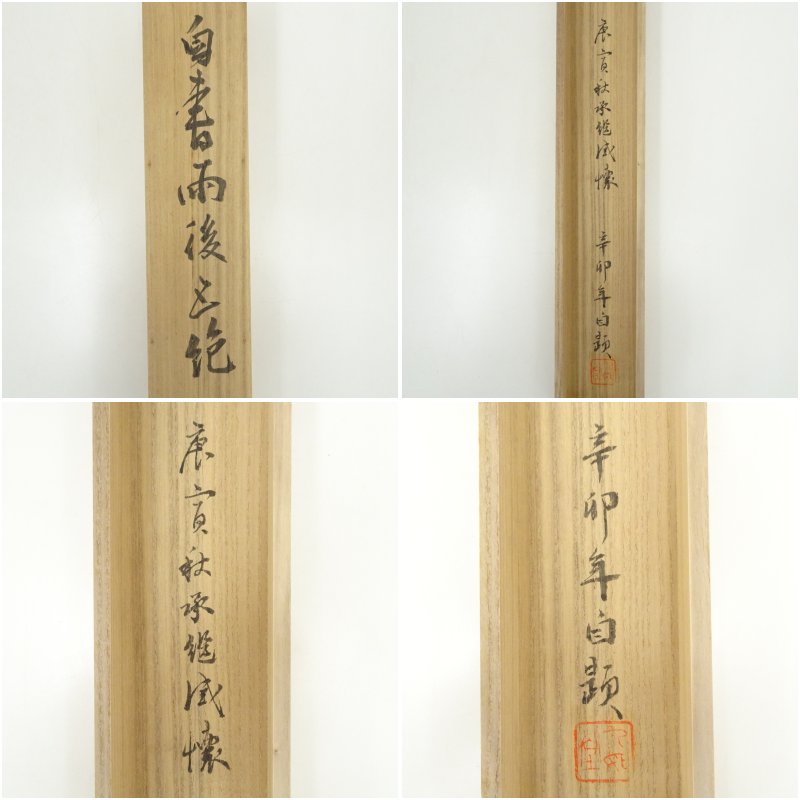 自書雨後五絶
庚寅秋承継感懐
辛卯年自題
庚寅秋承継感懐
辛卯年自題